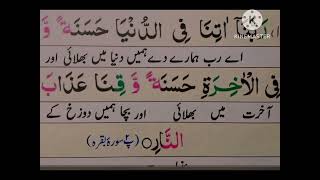 رَبَّنَآ اٰتِنَا فِی الدُّنْیَا حَسَنَةً وَّ
اے رب ہمارے دے ہمیں دنیا میں بھلائی اور
فِی الْاٰخِرَةِ حَسَنَةً وَّ قِنَا عَذَابَ
آخرت میں بھلائی اور بچا ہمیں دوزخ کے
النَّارِ (پ ۲ سورۂ بقرہ)
KINEMASTER